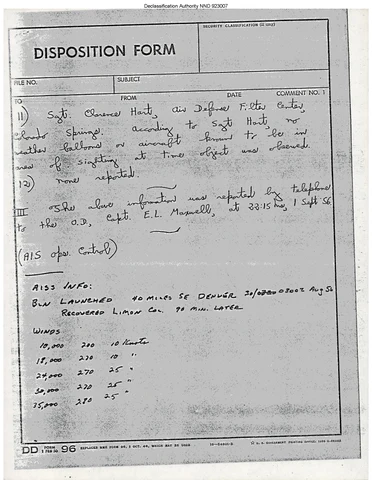 Declassification Authority NND 923007
SECURITY CLASSIFICATION (If any)
DISPOSITION FORM
FILE NO. SUBJECT
TO FROM DATE COMMENT NO. 1
11) Sgt. Clarence Hart, Air Defense Filter Center,
Springs. According to Sgt Hart no
weather balloons or aircraft known to be in
area of sighting at time object was observed.
12) none reported.
III The above information was reported by telephone
to the O.D., Capt. E.L. Maxwell, at 2215 hrs, 1 Sept 56
(AIS ops. Control)
AISS INFO:
BLN LAUNCHED 40 MILES SE DENVER Aug 56
RECOVERED LIMON COL. 90 MIN. LATER
WINDS
10,000 200 10 Knots
18,000 220 10 "
24,000 270 25 "
30,000 270 25 "
35,000 280 25 "
DD FORM 1 FEB 50 96 REPLACES NME FORM 96, 1 OCT. 48, WHICH MAY BE USED